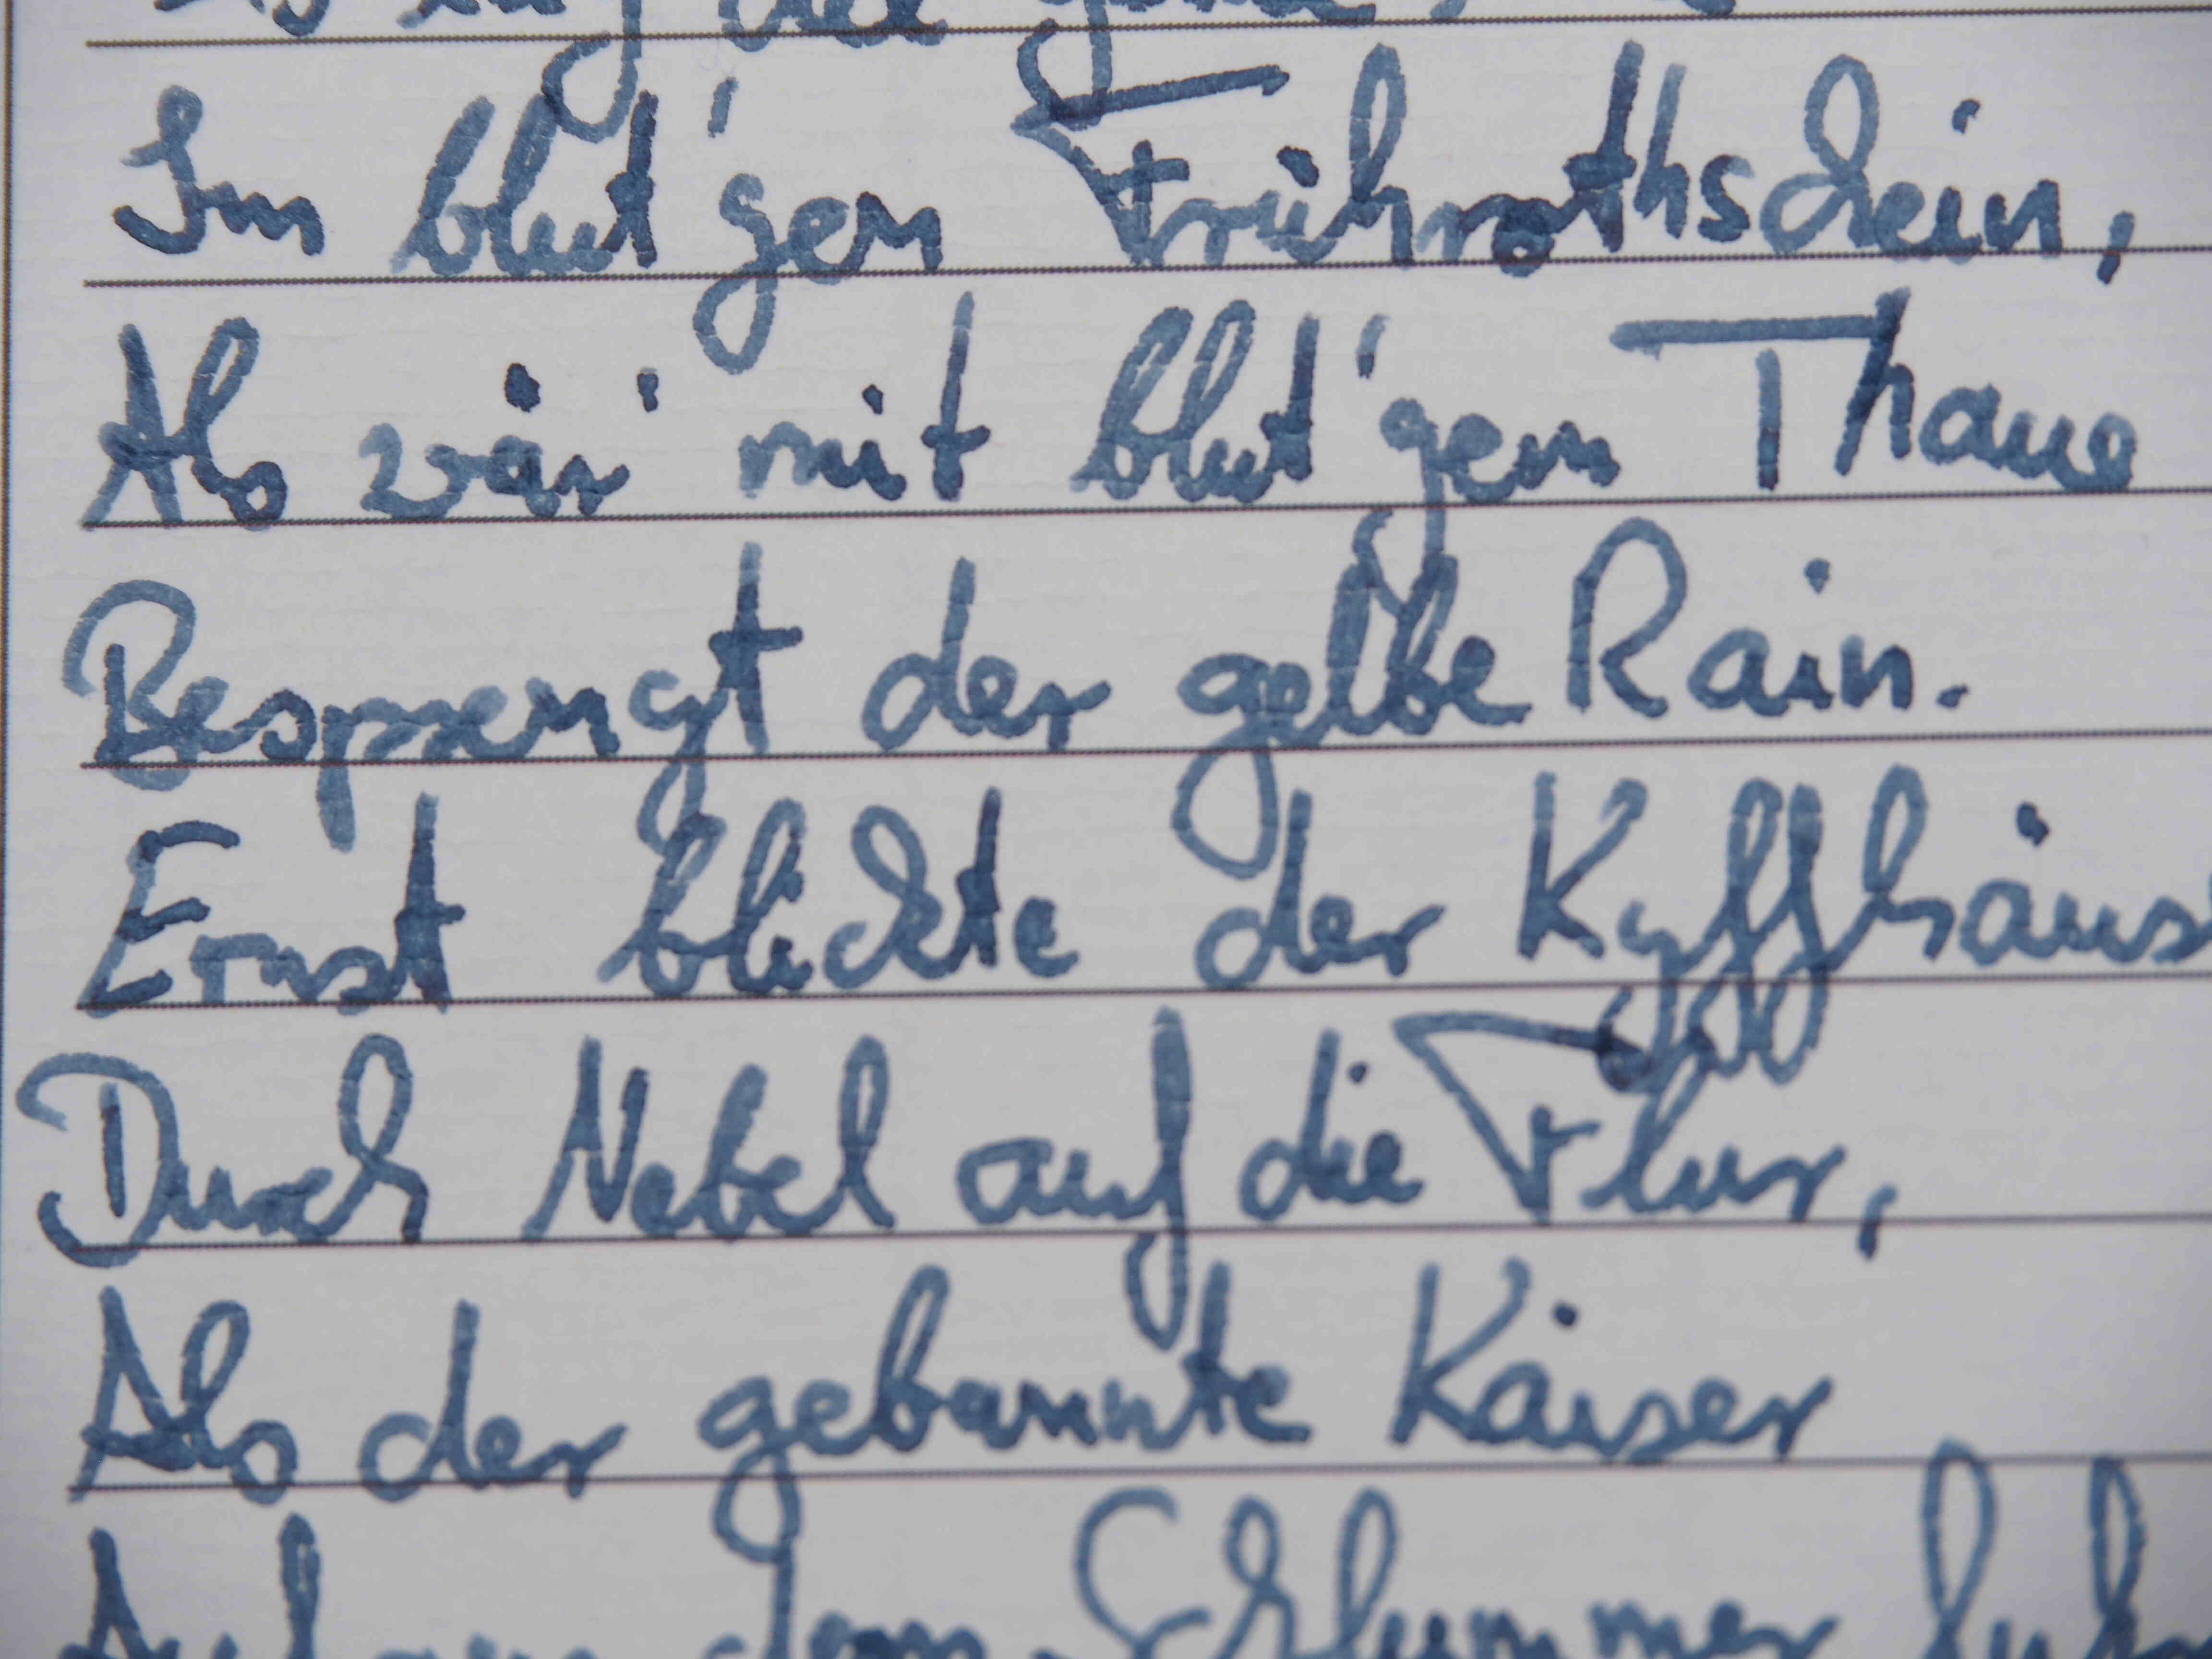 Im blut'gen Frührothschein,
Als wär' mit blut'gem Thaue
Besprengt der gelbe Rain.
Ernst blickte der Kyffhäus
Durch Nebel auf die Flur,
Als der gebannte Kaiser
dem Schlummer